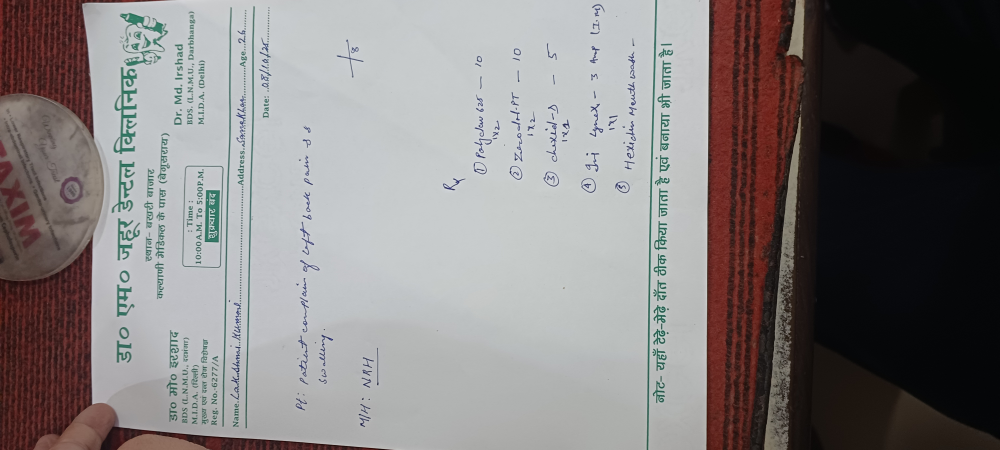 डा० एम० जहूर डेन्टल क्लिनिक
स्थान- बखरी बाजार
कल्याणी मेडिकल के पास (बेगूसराय)
डा० मो० इरशाद
BDS (L.N.M.U., दरभंगा)
M.I.D.A. (दिल्ली)
मुख एवं दन्त रोग विशेषज्ञ
Reg. No.-6277/A
: Time :
10:00A.M. To 5:00P.M.
शुक्रवार बंद
Dr. Md. Irshad
BDS. (L.N.M.U., Darbhanga)
M.I.D.A. (Delhi)
Name. Lakshmi Kumari Address. Age. 26
Date: 28/10/25
Pt: Patient complain of left back pain &
swelling.
8
M/H: NRH
Rx
① Polyclav 625 — 10
1x2
② Zocodol-PT — 10
1x2
③ — 5
④ Inj — 3 Amp (I.M)
1x1
⑤ Hexidin Mouthwash —
नोट- यहाँ टेढ़े-मेढ़े दाँत ठीक किया जाता है एवं बनाया भी जाता है।
TAXIM